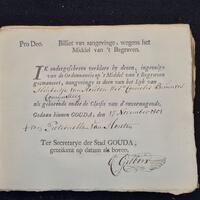 Pro Deo. Billiet van aangevinge, wegens het
Middel van 't Begraven.
IK ondergeschreven verklare by dezen, ingevolge
van de Ordonnantie op 't Middel van 't Begraven
geëmaneert, aangevinge te doen van het Lyk van
van Houten Wed. Cornelis
als gehorende onder de Classis van d'onvermogende.
Gedaan binnen GOUDA, den 27 November 1801
Pieternella van Houten
Ter Secretarye der Stad GOUDA,
geteekent op datum als boven,